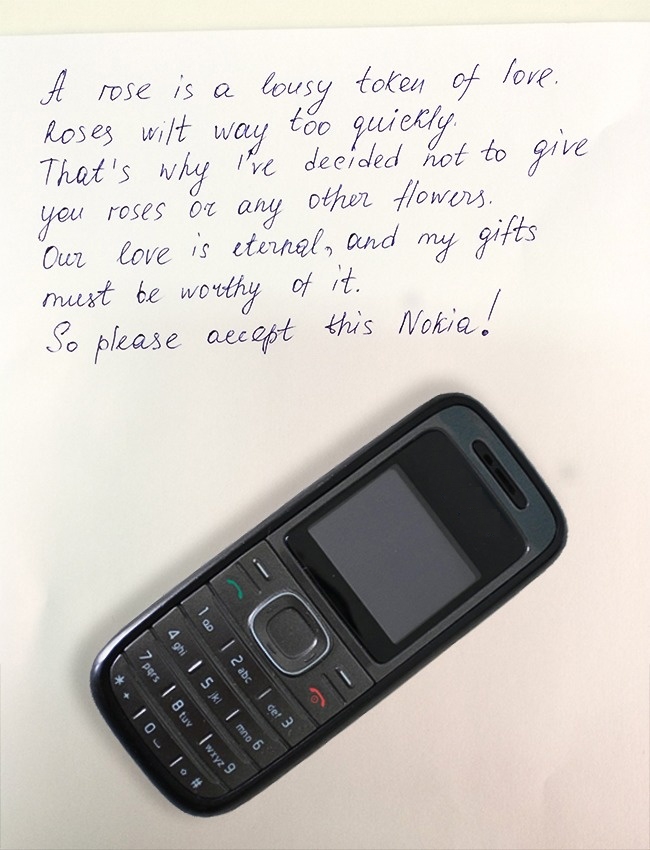 A rose is a lousy token of love.
Roses wilt way too quickly.
That's why I've decided not to give
you roses or any other flowers.
Our love is eternal, and my gifts
must be worthy of it.
So please accept this Nokia!
1
2 abc
def 3
4 ghi
5 jkl
mno 6
7 pqrs
8 tuv
wxyz 9
* +
0
#